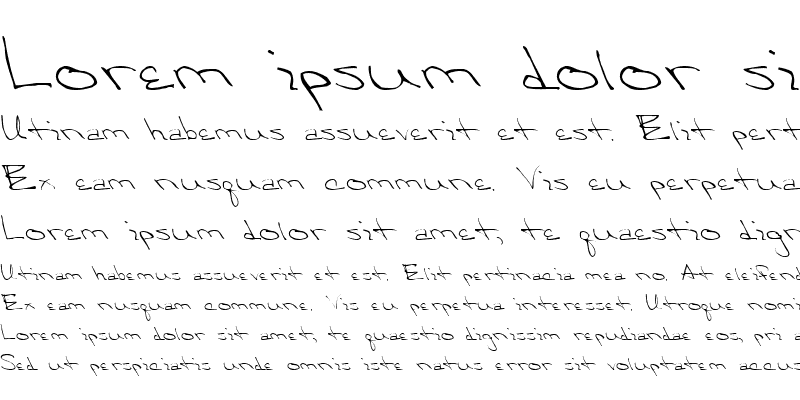 Lorem ipsum dolor si
Utinam habemus assueverit et est. Elit pert
Ex eam nusquam commune. Vis eu perpetua
Lorem ipsum dolor sit amet, te quaestio dign
Utinam habemus assueverit et est. Elit pertinacia mea no. At eleifend
Ex eam nusquam commune. Vis eu perpetua interesset. Utroque nomi
Lorem ipsum dolor sit amet, te quaestio dignissim repudiandae eos, pri a
Sed ut perspiciatis unde omnis iste natus error sit voluptatem accus